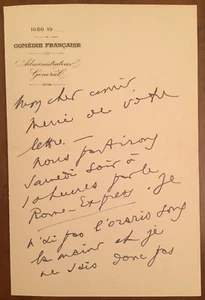 1680-19
COMÉDIE FRANÇAISE
Administrateur
Général
Mon cher ami
Merci de votre
lettre. —
Nous partirons
samedi soir à
10 heures par le
Rome-Express. Je
n'ai pas l'horaire sous
la main et je
ne sais donc pas